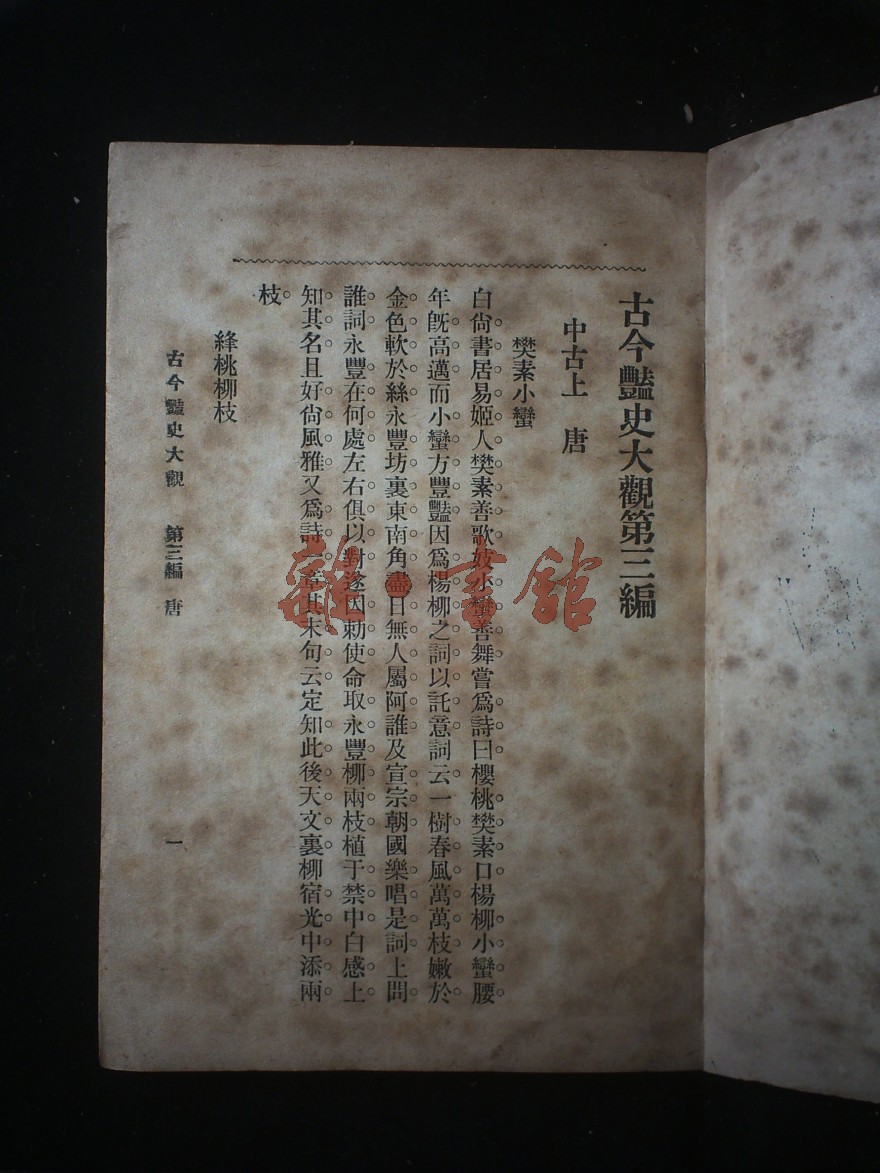 古今豔史大觀第三編
中古上　唐
樊素小蠻
白尙書居易姬人樊素善歌妓小蠻善舞嘗爲詩曰櫻桃樊素口楊柳小蠻腰
年旣高邁而小蠻方豐豔因爲楊柳之詞以託意詞云一樹春風萬萬枝嫩於
金色軟於絲永豐坊裏東南角盡日無人屬阿誰及宣宗朝國樂唱是詞上問
誰詞永豐在何處左右俱以對遂因勅使命取永豐柳兩枝植于禁中白感上
知其名且好尙風雅又爲詩一章其末句云定知此後天文裏柳宿光中添兩
枝
絳桃柳枝
古今豔史大觀　第三編　唐
一
雜·書館